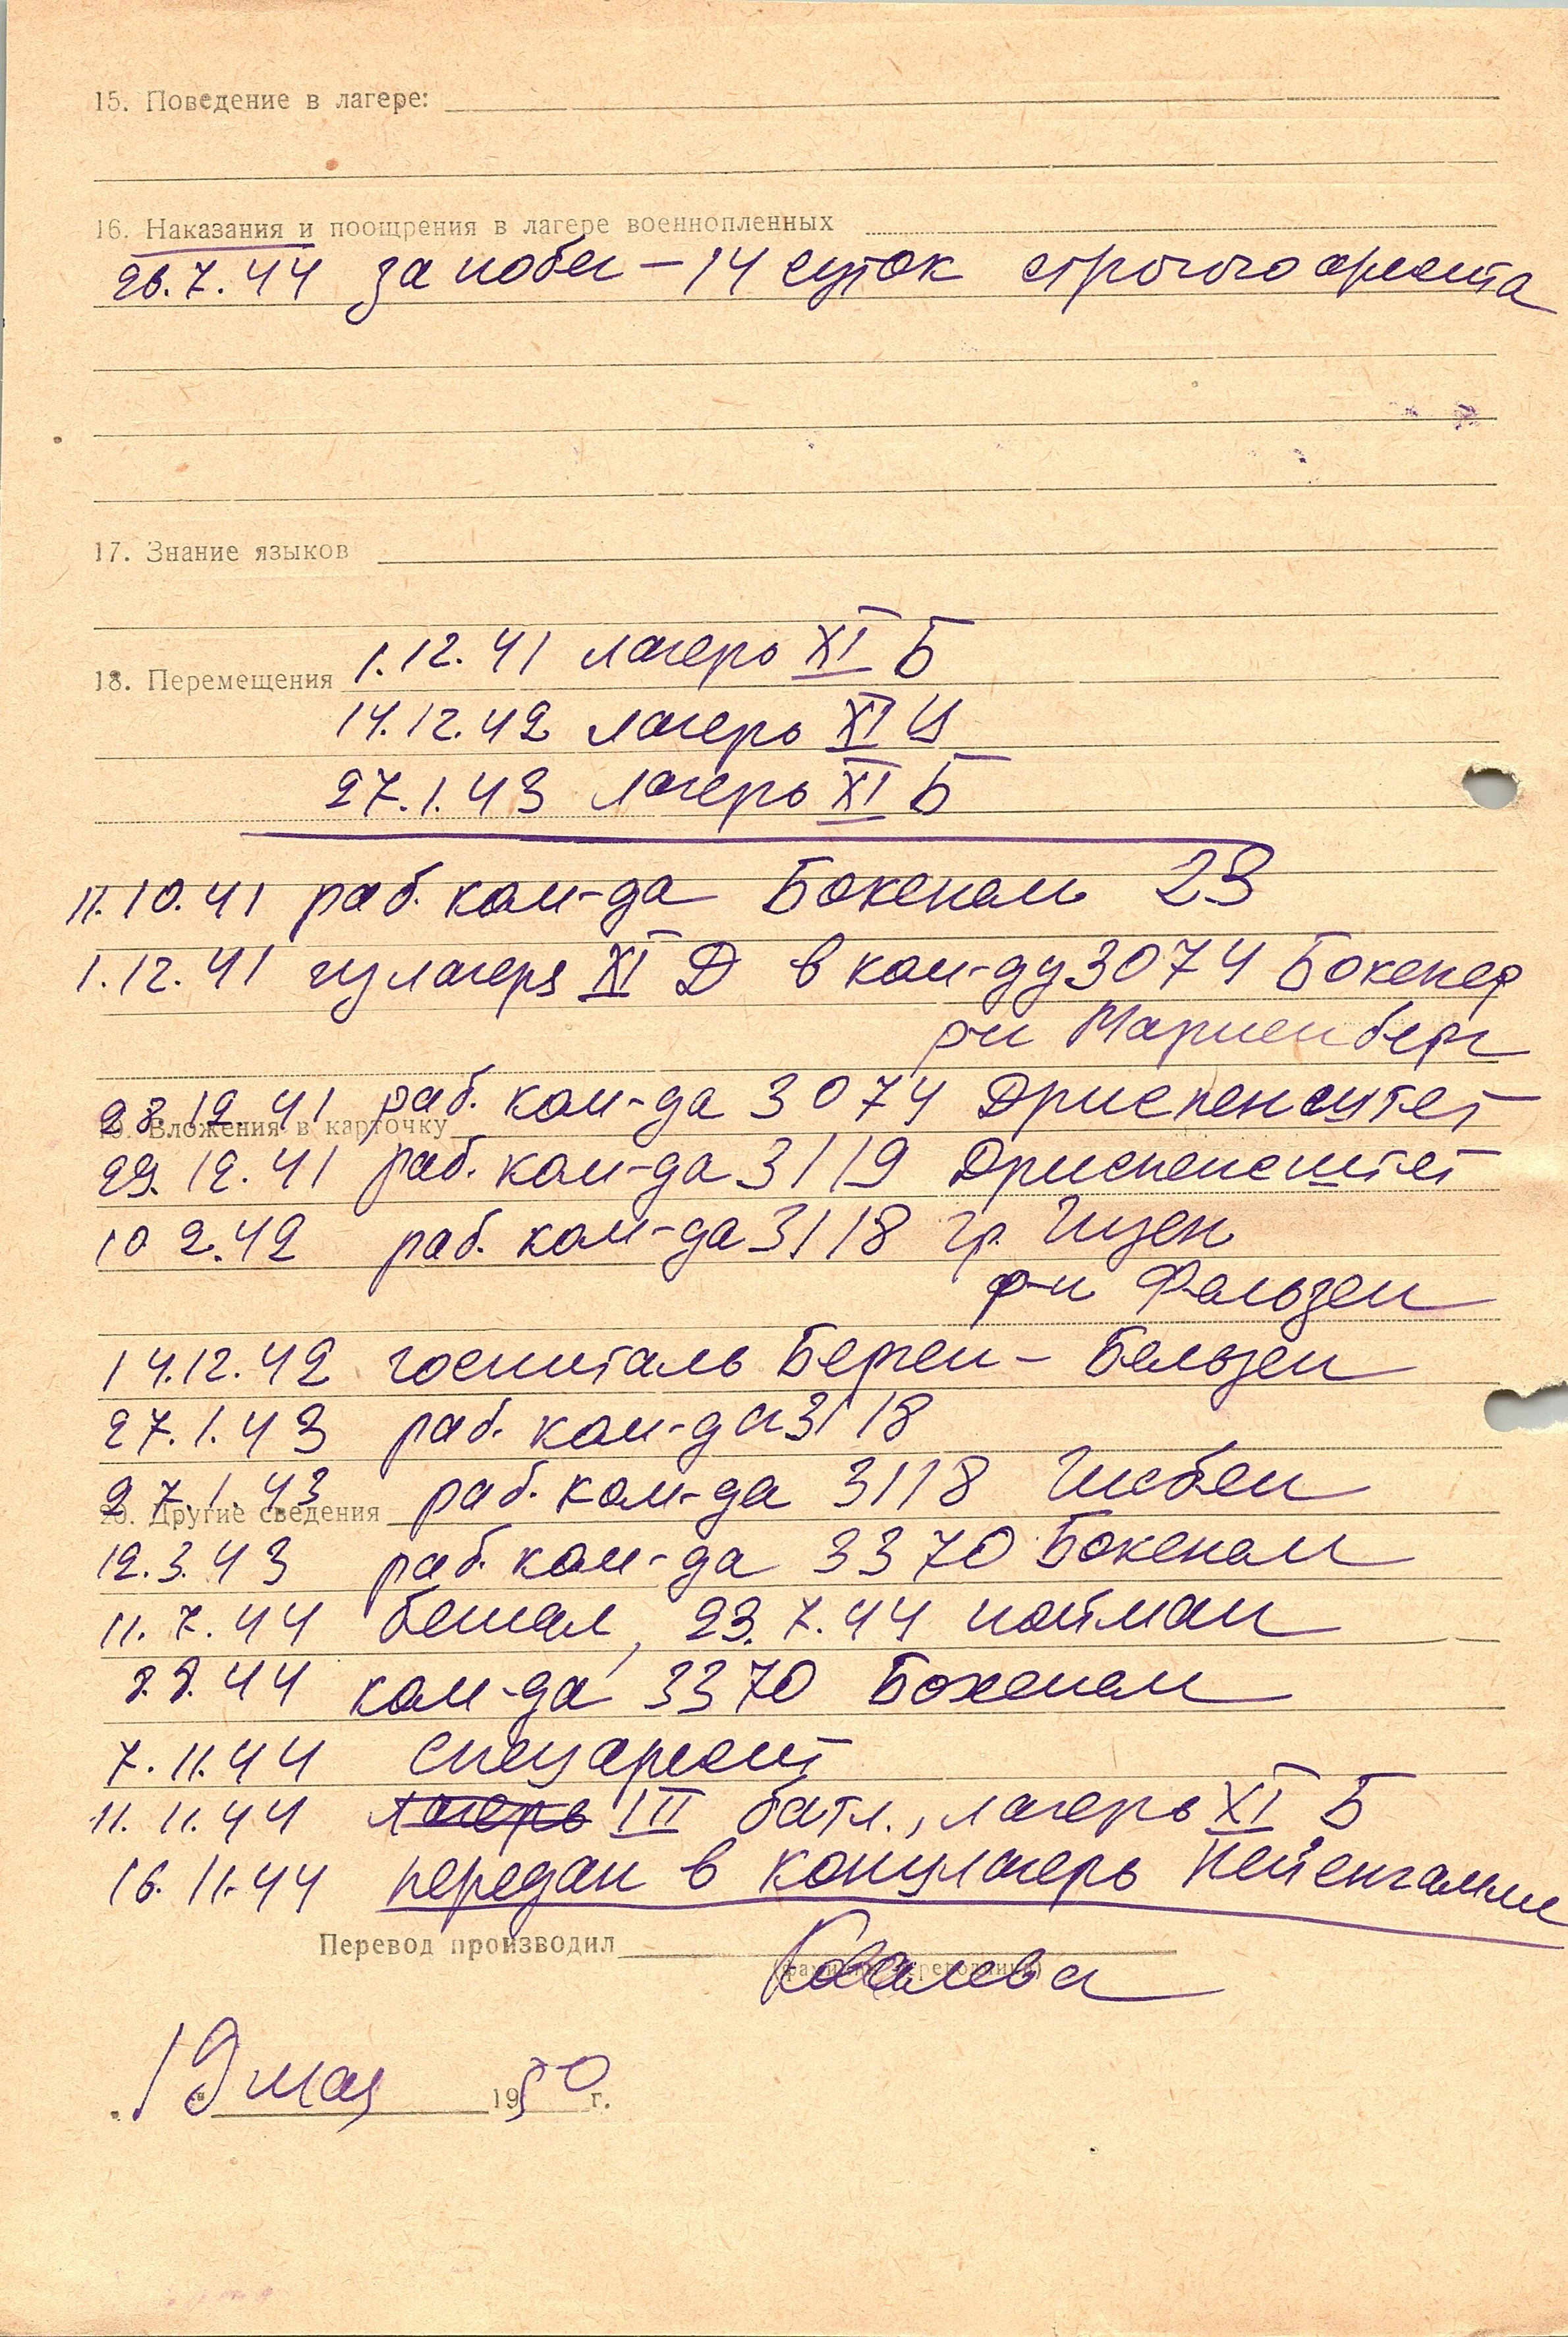 15. Поведение в лагере:
16. Наказания и поощрения в лагере военнопленных
26.7.44 за побег – 14 суток строгого ареста
17. Знание языков
1.12.41 лагерь XI Б
18. Перемещения
14.12.42 лагерь XI Ц
27.1.43 лагерь XI Б
11.10.41 раб. ком-да Бокенам 23
1.12.41 из лагеря XI Д в ком-ду 3074 Бокенер
р-н Мариенберг
23.12.41 раб. ком-да 3074 Дриспенштет
19. Вложения в карточку
29.12.41 раб. ком-да 3119 Дриспенштет
10 2.42 раб. ком-да 3118 Гр. Гизен
р-н Фользен
14.12.42 госпиталь Берген – Бельзен
27.1.43 раб. ком-да 3118
27.1.43 раб. ком-да 3118
20. Другие сведения
12.3.43 раб. ком-да 3370 Бокенам
11.7.44 бежал, 23.7.44 пойман
8.8.44 ком-да 3370 Бокенам
7.11.44 спецарест
11.11.44 лагерь III батл., лагерь XI Б
16.11.44 передан в концлагерь Нейенгамме
Перевод производил Ковалева
(фамилия переводчика)
"19 мая 1950 г.